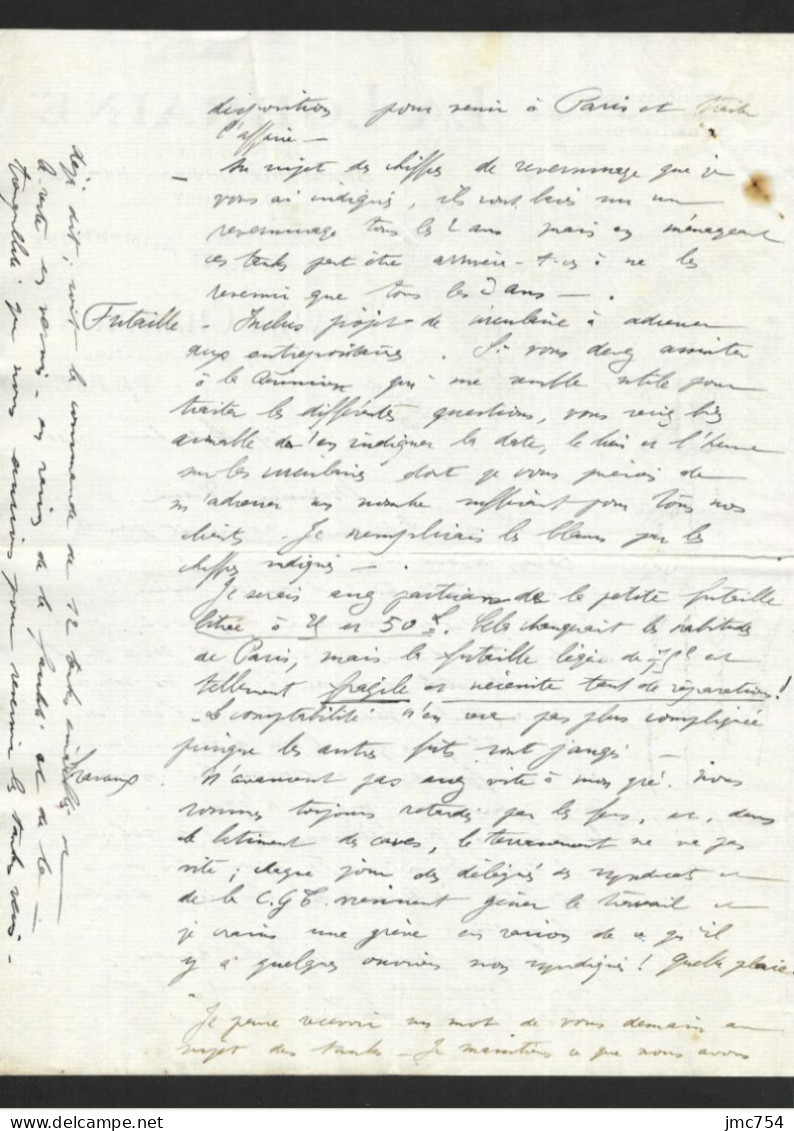 disposition pour venir à Paris et traiter
l'affaire —
— Au sujet des chiffres de revernissage que je
vous ai indiqués, ils sont basés sur un
revernissage tous les 2 ans mais en ménageant
ces tanks peut être arrivera-t-on à ne les
revernir que tous les 3 ans — .
Futaille - Inclus projet de circulaire à adresser
aux entrepositaires. Si vous devez assister
à la réunion qui me semble utile pour
traiter les différentes questions, vous serez bien
aimable de m'en indiquer la date, le lieu et l'heure
sur les circulaires dont je vous prierais de
m'adresser un nombre suffisant pour tous nos
clients. Je remplirais les blancs par les
chiffres indiqués — .
Je serais assez partisan de la petite futaille
litrée à 25 et 50 L. Cela changerait les habitudes
de Paris, mais la futaille légère de est
tellement fragile et nécessite tant de réparations!
- La comptabilité n'en sera pas plus compliquée
puisque les autres fûts sont jaugés —
Travaux N'avancent pas assez vite à mon gré. Nous
sommes toujours retardés par les fers, et, dans
le bâtiment des caves, le terrassement ne va pas
vite; chaque jour des délégués des syndicats et
de la C.G.T. viennent gêner le travail et
je crains une grève en raison de ce qu'il
y a quelques ouvriers non syndiqués! Quelle plaie.
Je pense recevoir un mot de vous demain au
sujet des tanks - Je maintiens ce que nous avons
déjà dit; soit la commande de 12 tanks émaillés et
le reste en vernis - en raison de la et de la
tranquillité que nous aurions pour revernir les tanks vernis -
jmc754